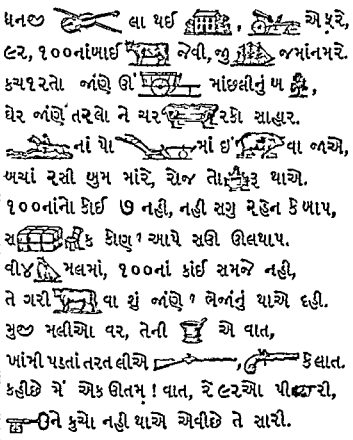 ધનજી લા થઈ , એ ફરે,
૯૨, ૧૦૦નાંબાઈ જેવી, જી જમાંનમરે.
કચ૧૨તા જાંણે ઊં માંછલીનું ખ ,
ઘેર જાંણે તરલા ને ચર રકો સાહાર.
નાં પા માં ઇં વા જાએ,
બચાં ૨સી થુમ મારે, રોજ તો રૂ થાએ.
૧૦૦નાંતો કોઈ ૭ નહી, નહી સગુ રહેન કે બાપ,
સ ક કોણ? આપે સઊ ઊલથાપ.
વી૪ મલમાં, ૧૦૦નાં કાંઈ સમજે નહી,
તે ગરી વા શું જાંણે? ભેજાંનું થાએ દહી.
મુજી મલીઆ વર, તેની એ વાત,
ખાંમી પડતાં તરત લીએ , કે લાત.
કહીછે મેં એક ઊતમ! વાત, રે ૯૨આ પી રી,
ને કુચો નહી થાએ એવીછે તે સારી.